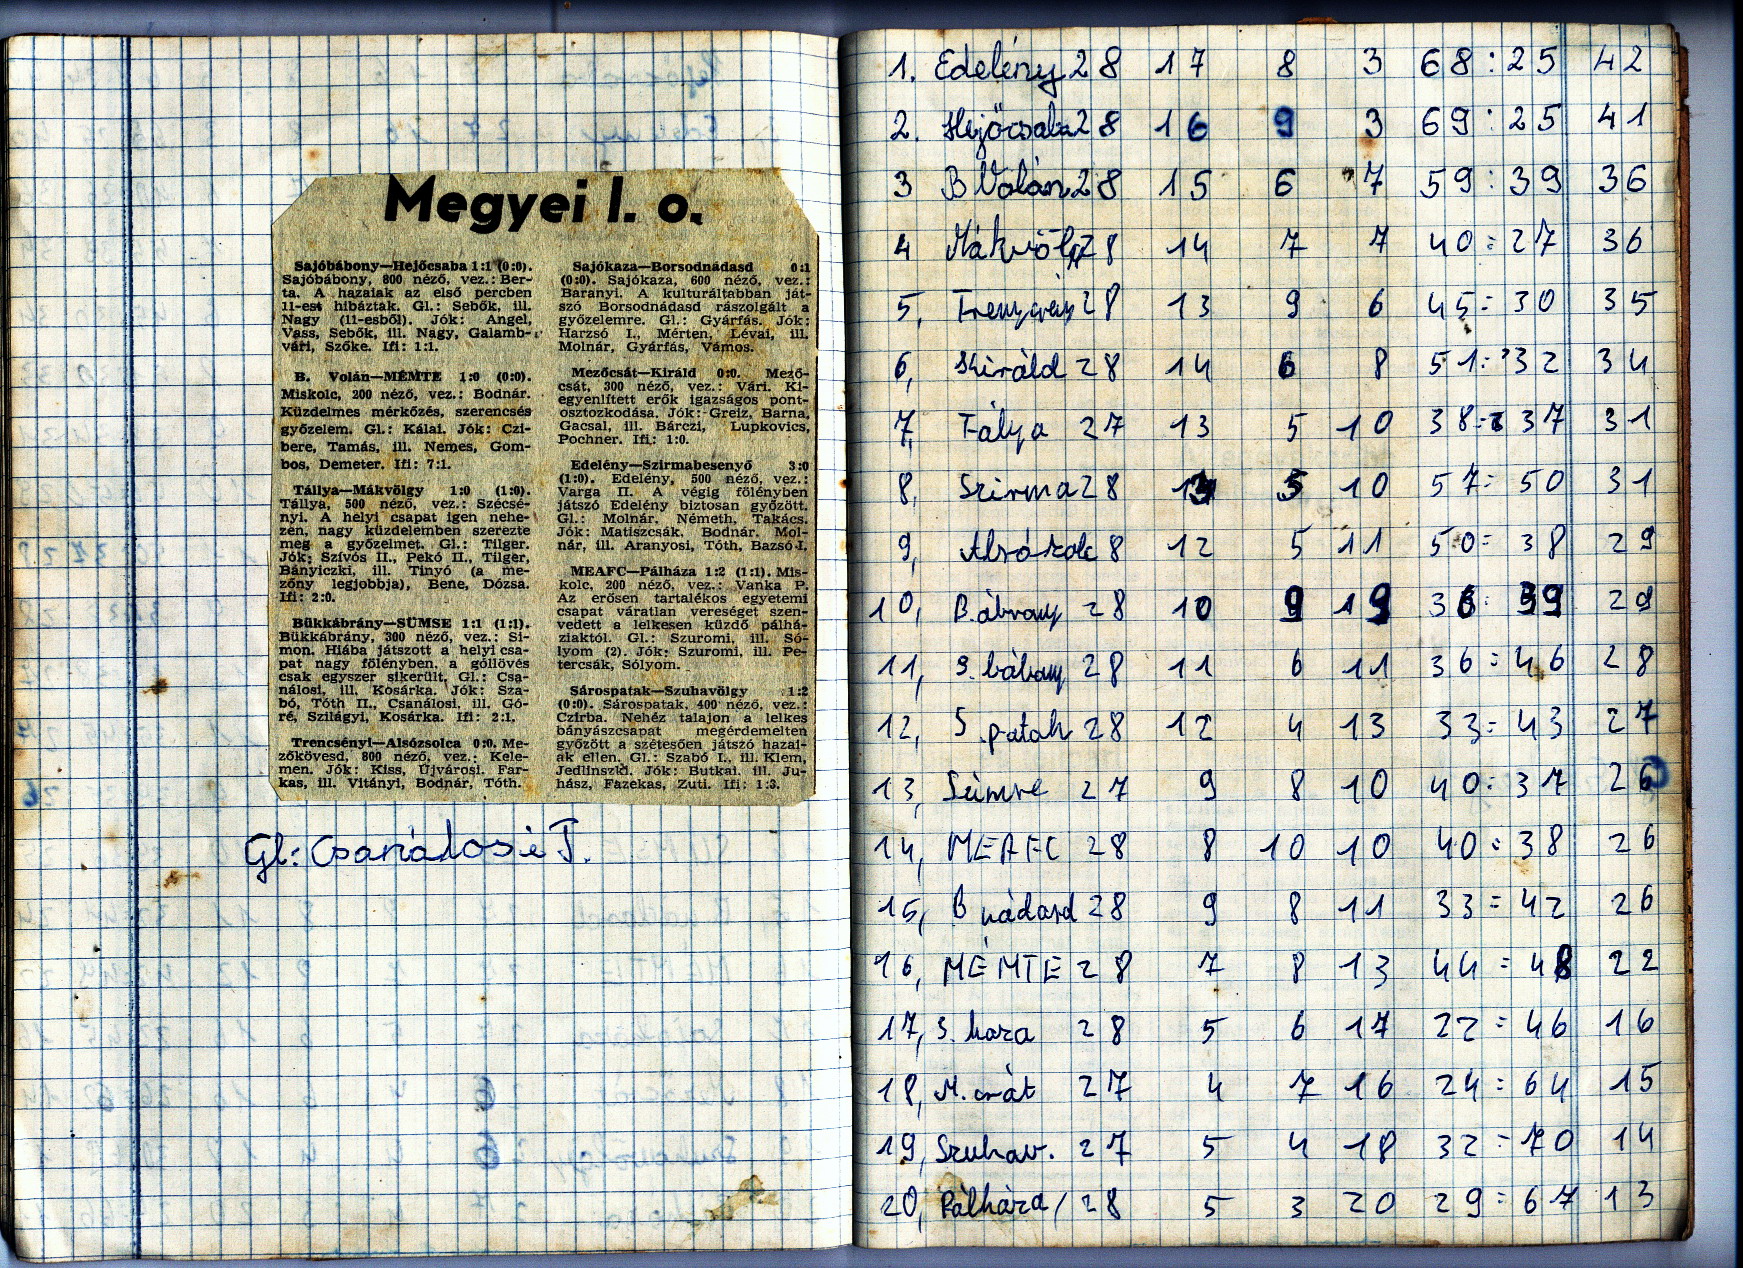 Megyei I. o.
Sajóbábony—Hejőcsaba 1:1 (0:0).
Sajóbábony, 800 néző, vez.: Ber-
ta. A hazaiak az első percben
11-est hibáztak. Gl.: Sebők, ill.
Nagy (11-esből). Jók: Angel,
Vass, Sebők, ill. Nagy, Galamb-
vári, Szőke. Ifi: 1:1.
B. Volán—MÉMTE 1:0 (0:0).
Miskolc, 200 néző, vez.: Bodnár.
Küzdelmes mérkőzés, szerencsés
győzelem. Gl.: Kálai. Jók: Czi-
bere, Tamás, ill. Nemes, Gom-
bos, Demeter. Ifi: 7:1.
Tállya—Mákvölgy 1:0 (1:0).
Tállya, 500 néző, vez.: Szécsé-
nyi. A helyi csapat igen nehe-
zen, nagy küzdelemben szerezte
meg a győzelmet. Gl.: Tilger.
Jók: Szívós II., Pekó II., Tilger,
Bányiczki, ill. Tinyó (a me-
zőny legjobbja), Bene, Dózsa.
Ifi: 2:0.
Bükkábrány—SÜMSE 1:1 (1:1).
Bükkábrány, 300 néző, vez.: Si-
mon. Hiába játszott a helyi csa-
pat nagy fölényben, a góllövés
csak egyszer sikerült. Gl.: Csa-
nálosi, ill. Kosárka. Jók: Sza-
bó, Tóth II., Csanálosi, ill. Gó-
ré, Szilágyi, Kosárka. Ifi: 2:1.
Trencsényi—Alsózsolca 0:0. Me-
zőkövesd, 800 néző, vez.: Kele-
men. Jók: Kiss, Újvárosi, Far-
kas, ill. Vitányi, Bodnár, Tóth.
Sajókaza—Borsodnádasd 0:1
(0:0). Sajókaza, 600 néző, vez.:
Baranyi. A kulturáltabban ját-
szó Borsodnádasd rászolgált a
győzelemre. Gl.: Gyárfás. Jók:
Harzsó I., Mérten, Lévai, ill.
Molnár, Gyárfás, Vámos.
Mezőcsát—Királd 0:0. Mező-
csát, 300 néző, vez.: Vári. Ki-
egyenlített erők igazságos pont-
osztozkodása. Jók: Greiz, Barna,
Gacsal, ill. Bárczi, Lupkovics,
Pochner. Ifi.: 1:0.
Edelény—Szirmabesenyő 3:0
(1:0). Edelény, 500 néző, vez.:
Varga II. A végig fölényben
játszó Edelény biztosan győzött.
Gl.: Molnár, Németh, Takács.
Jók: Matiszcsák, Bodnár, Mol-
nár, ill. Aranyosi, Tóth, Bazsó I.
MEAFC—Pálháza 1:2 (1:1). Mis-
kolc, 200 néző, vez.: Vanka P.
Az erősen tartalékos egyetemi
csapat váratlan vereséget szen-
vedett a lelkesen küzdő pálhá-
ziaktól. Gl.: Szuromi, ill. Só-
lyom (2). Jók: Szuromi, ill. Pe-
tercsák, Sólyom.
Sárospatak—Szuhavölgy 1:2
(0:0). Sárospatak, 400 néző, vez.:
Czirba. Nehéz talajon a lelkes
bányászcsapat megérdemelten
győzött a szétesően játszó hazai-
ak ellen. Gl.: Szabó I., ill. Klem,
Jedlinszki. Jók: Butkai, ill. Ju-
hász, Fazekas, Zuti. Ifi: 1:3.
Gl: Csanálosi T.
1. Edelény 28 17 8 3 68:25 42
2. Hejőcsaba 28 16 9 3 69:25 41
3 B Volán 28 15 6 7 59:39 36
4 Mákvölgy 28 14 7 7 40:27 36
5, 28 13 9 6 45:30 35
6, Királd 28 14 6 8 51:32 34
7, Tálya 27 13 5 10 38:37 31
8, Szirma 28 13 5 10 57:50 31
9, Alsózsolc 28 12 5 11 50:38 29
10, B.ábrany 28 10 9 9 36:39 29
11, S. bábony 28 11 6 11 36:46 28
12, S. patak 28 12 4 13 33:43 27
13, Sümse 27 9 8 10 40:37 26
14, MEAFC 28 8 10 10 40:38 26
15, B nádasd 28 9 8 11 33:42 26
16, MÉMTE 28 7 8 13 44:48 22
17, S. kaza 28 5 6 17 22:46 16
18, M. csát 27 4 7 16 24:64 15
19, Szuhav. 27 5 4 18 32:70 14
20, Pálháza 28 5 3 20 29:67 13